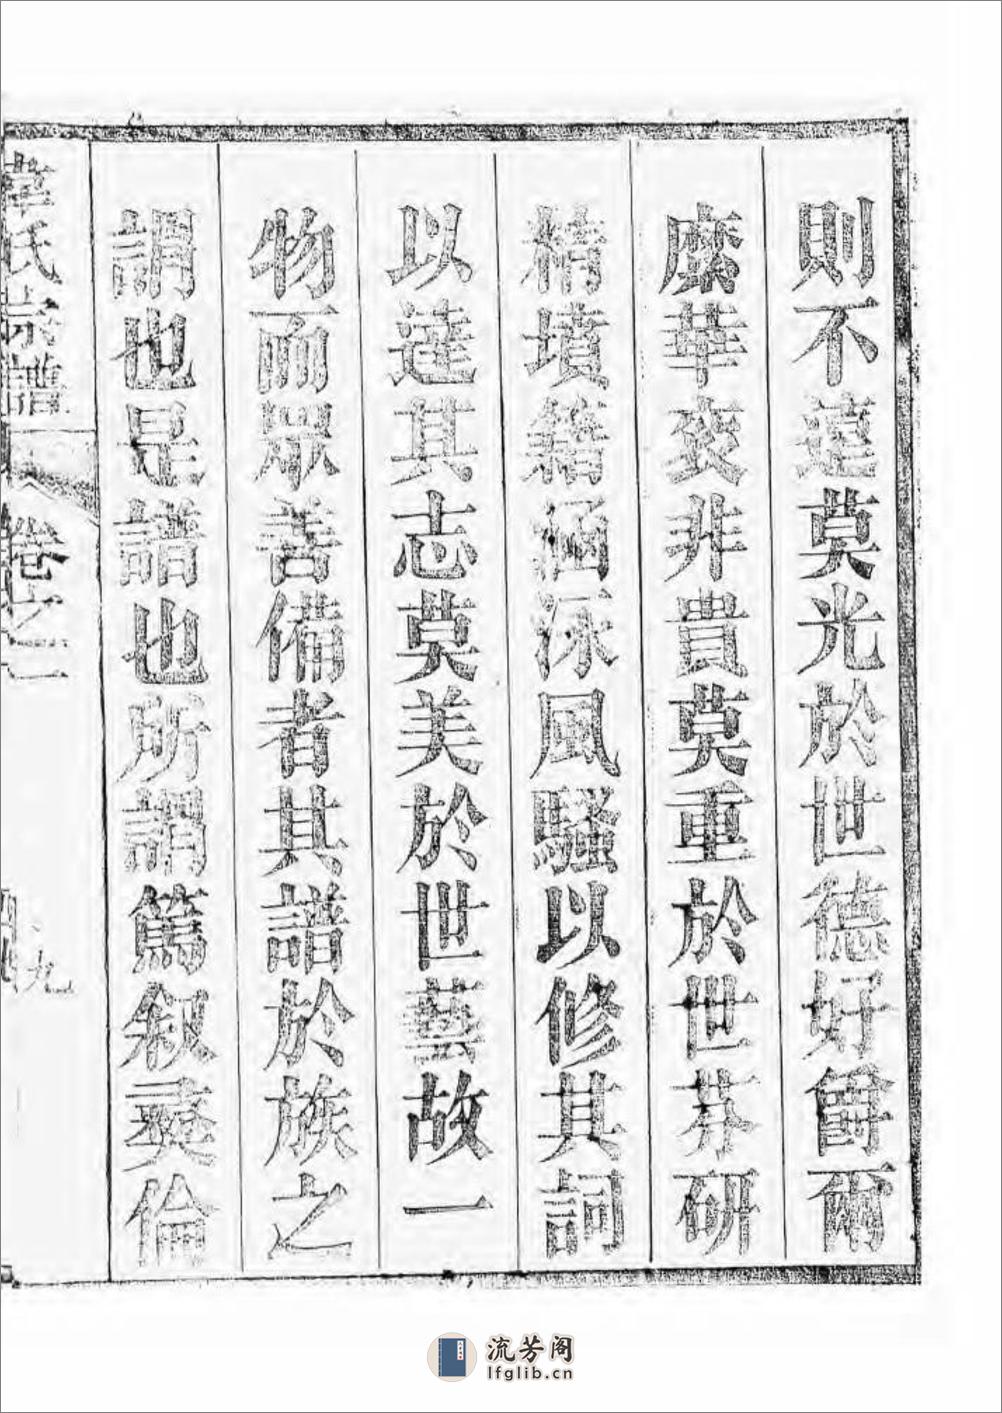 則不薳莫光於世德好爵爾
縻華衮非貴莫重於世芬研
精墳籍涵泳風騷以修其詞
以達其志莫美於世藝故一
物而眾善備者其譜於族之
謂也是譜也所謂篤叙彛倫
韋氏宗譜
卷之二
流芳阁
lfglib.cn